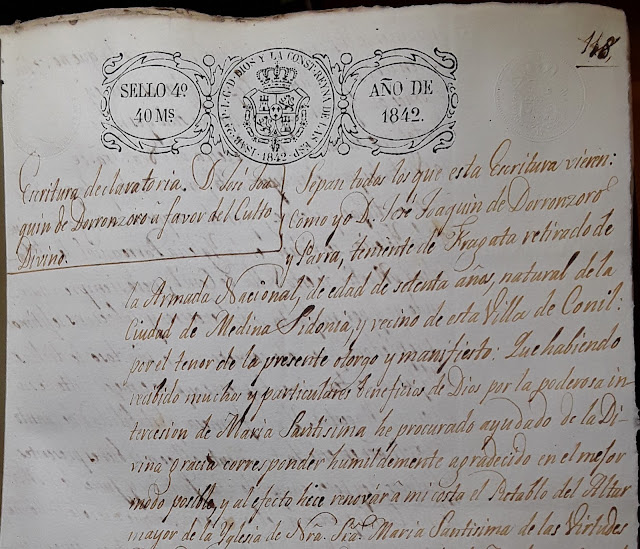 118,
SELLO 4º
40 MS.
ISAB. 2ª P. L. G. D. DIOS Y LA CONST. REYNA DE LAS ESP.
1842
AÑO DE
1842.
Escritura declaratoria. D. José Joa
quin de Dorronzoro à favor del Culto
Divino.
Sepan todos los que esta Escritura vieren:
Como yo D. José Joaquin de Dorronzoro
y Parra, teniente de Fragata retirado de
la Armada Nacional, de edad de setenta años, natural de la
Ciudad de Medina Sidonia, y vecino de esta Villa de Conil:
por el tenor de la presente otorgo y manifiesto: Que habiendo
recibido muchos y particulares beneficios de Dios por la poderosa in
tercesion de Maria Santisima he procurado ayudado de la Di
vina gracia corresponder humildemente agradecido en el mejor
modo posible, y al efecto hice renovar à mi costa el Retablo del Altar
mayor de la Iglesia de Ntra. Sra. Maria Santisima de las Virtudes